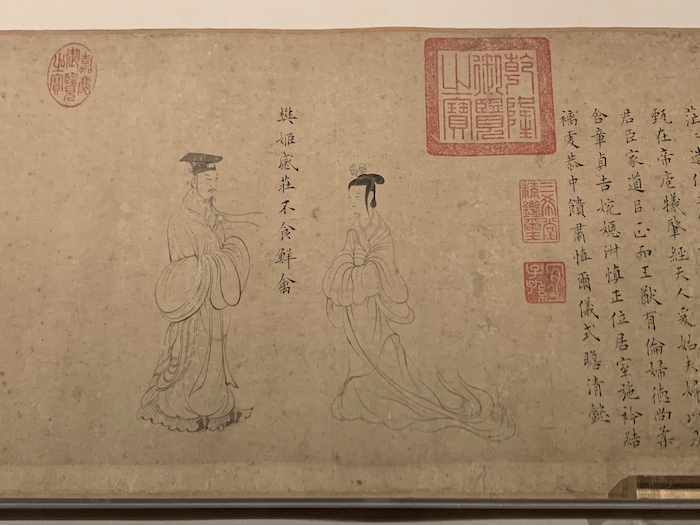 甄在帝庖犧肇經天人爰始夫婦以及
君臣家道以正而王猷有倫婦德尚柔
含章貞吉婉嫕淑慎正位居室施衿結
褵虔恭中饋肅慎爾儀式瞻清懿
乾隆御覽之寶
三希堂精鑑璽
宜子孫
樊姬感莊不食鮮禽
嘉慶御覽之寶